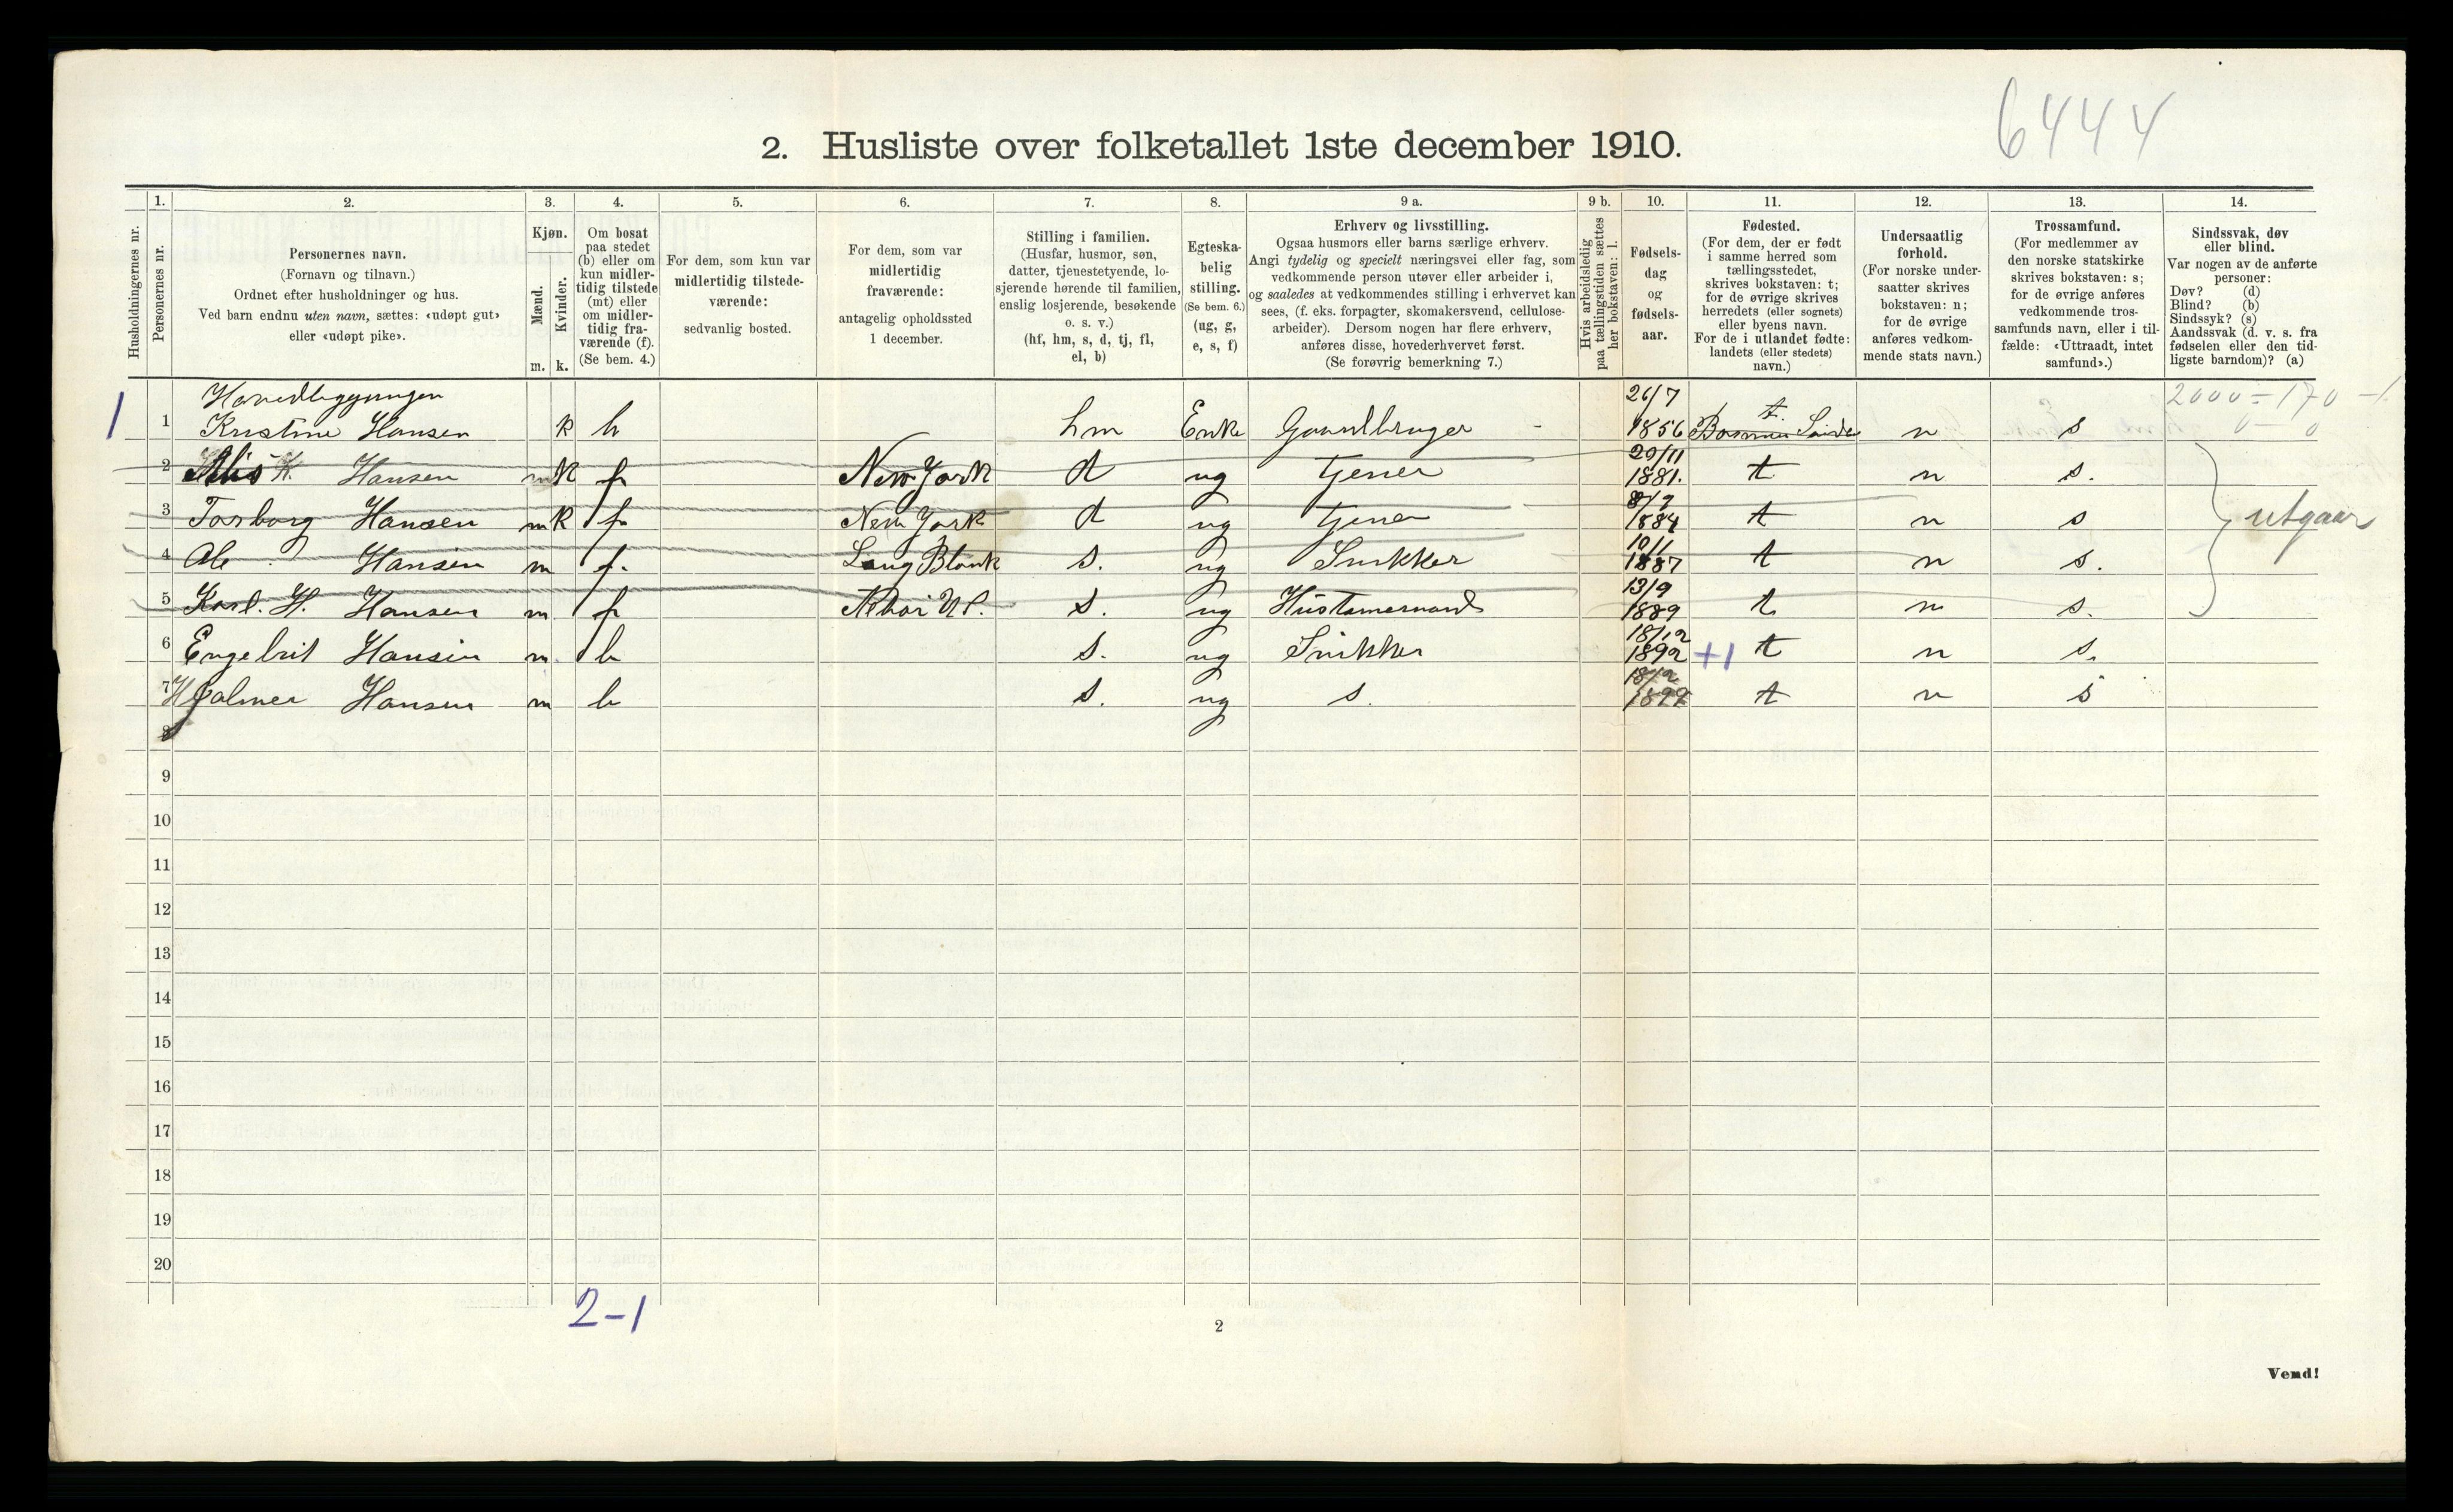 6444
2. Husliste over folketallet 1ste december 1910.
Husholdningernes nr.
1.
Personernes nr.
2.
Personernes navn.
(Fornavn og tilnavn.)
Ordnet efter husholdninger og hus.
Ved barn endnu uten navn, sættes: «udøpt gut»
eller «udøpt pike».
3.
Kjøn.
Mænd.
Kvinder.
m. k.
4.
Om bosat
paa stedet
(b) eller om
kun midler-
tidig tilstede
(mt) eller
om midler-
tidig fra-
værende (f).
(Se bem. 4.)
5.
For dem, som kun var
midlertidig tilstede-
værende:
sedvanlig bosted.
6.
For dem, som var
midlertidig
fraværende:
antagelig opholdssted
1 december.
7.
Stilling i familien.
(Husfar, husmor, søn,
datter, tjenestetyende, lo-
sjerende hørende til familien,
enslig losjerende, besøkende
o. s. v.)
(hf, hm, s, d, tj, fl,
el, b)
8.
Egteska-
belig
stilling.
(Se bem. 6.)
(ug, g,
e, s, f)
9 a.
Erhverv og livsstilling.
Ogsaa husmors eller barns særlige erhverv.
Angi tydelig og specielt næringsvei eller fag, som
vedkommende person utøver eller arbeider i,
og saaledes at vedkommendes stilling i erhvervet kan
sees, (f. eks. forpagter, skomakersvend, cellulose-
arbeider). Dersom nogen har flere erhverv,
anføres disse, hovederhvervet først.
(Se forøvrig bemerkning 7.)
9 b.
Hvis arbeidsledig
paa tællingstiden sættes
her bokstaven: l.
10.
Fødsels-
dag
og
fødsels-
aar.
11.
Fødested.
(For dem, der er født
i samme herred som
tællingsstedet,
skrives bokstaven: t;
for de øvrige skrives
herredets (eller sognets)
eller byens navn.
For de i utlandet fødte:
landets (eller stedets)
navn.)
12.
Undersaatlig
forhold.
(For norske under-
saatter skrives
bokstaven: n;
for de øvrige
anføres vedkom-
mende stats navn.)
13.
Trossamfund.
(For medlemmer av
den norske statskirke
skrives bokstaven: s;
for de øvrige anføres
vedkommende tros-
samfunds navn, eller i til-
fælde: «Uttraadt, intet
samfund».)
14.
Sindssvak, døv
eller blind.
Var nogen av de anførte
personer:
Døv? (d)
Blind? (b)
Sindssyk? (s)
Aandssvak (d. v. s. fra
fødselen eller den tid-
ligste barndom)? (a)
26/7 2000 = 170 - 1
1 1 Kristine Hansen k b hm Enke Gaardbruger - 1856 t. n s
29/11
2 K. Hansen m k f New York d ug tjener 1881. t n s.
8/9
3 Torborg Hansen m k f New York d ug tjener 1884 t n s utgaar
10/1
4 Ole Hansen m f. s. ug Snikker 1887 t n s.
13/9
5 Karl. H. Hansen m f s. ug Hustømermand 1889 t n s.
18/12
6 Engebrit Hansen m. b s. ug Snikker 1892 +1 t n s.
18/2
7 Hjalmer Hansen m b s. ug s. t n s
8
9
10
11
12
13
14
15
16
17
18
19
20
2-1
2
Vend!